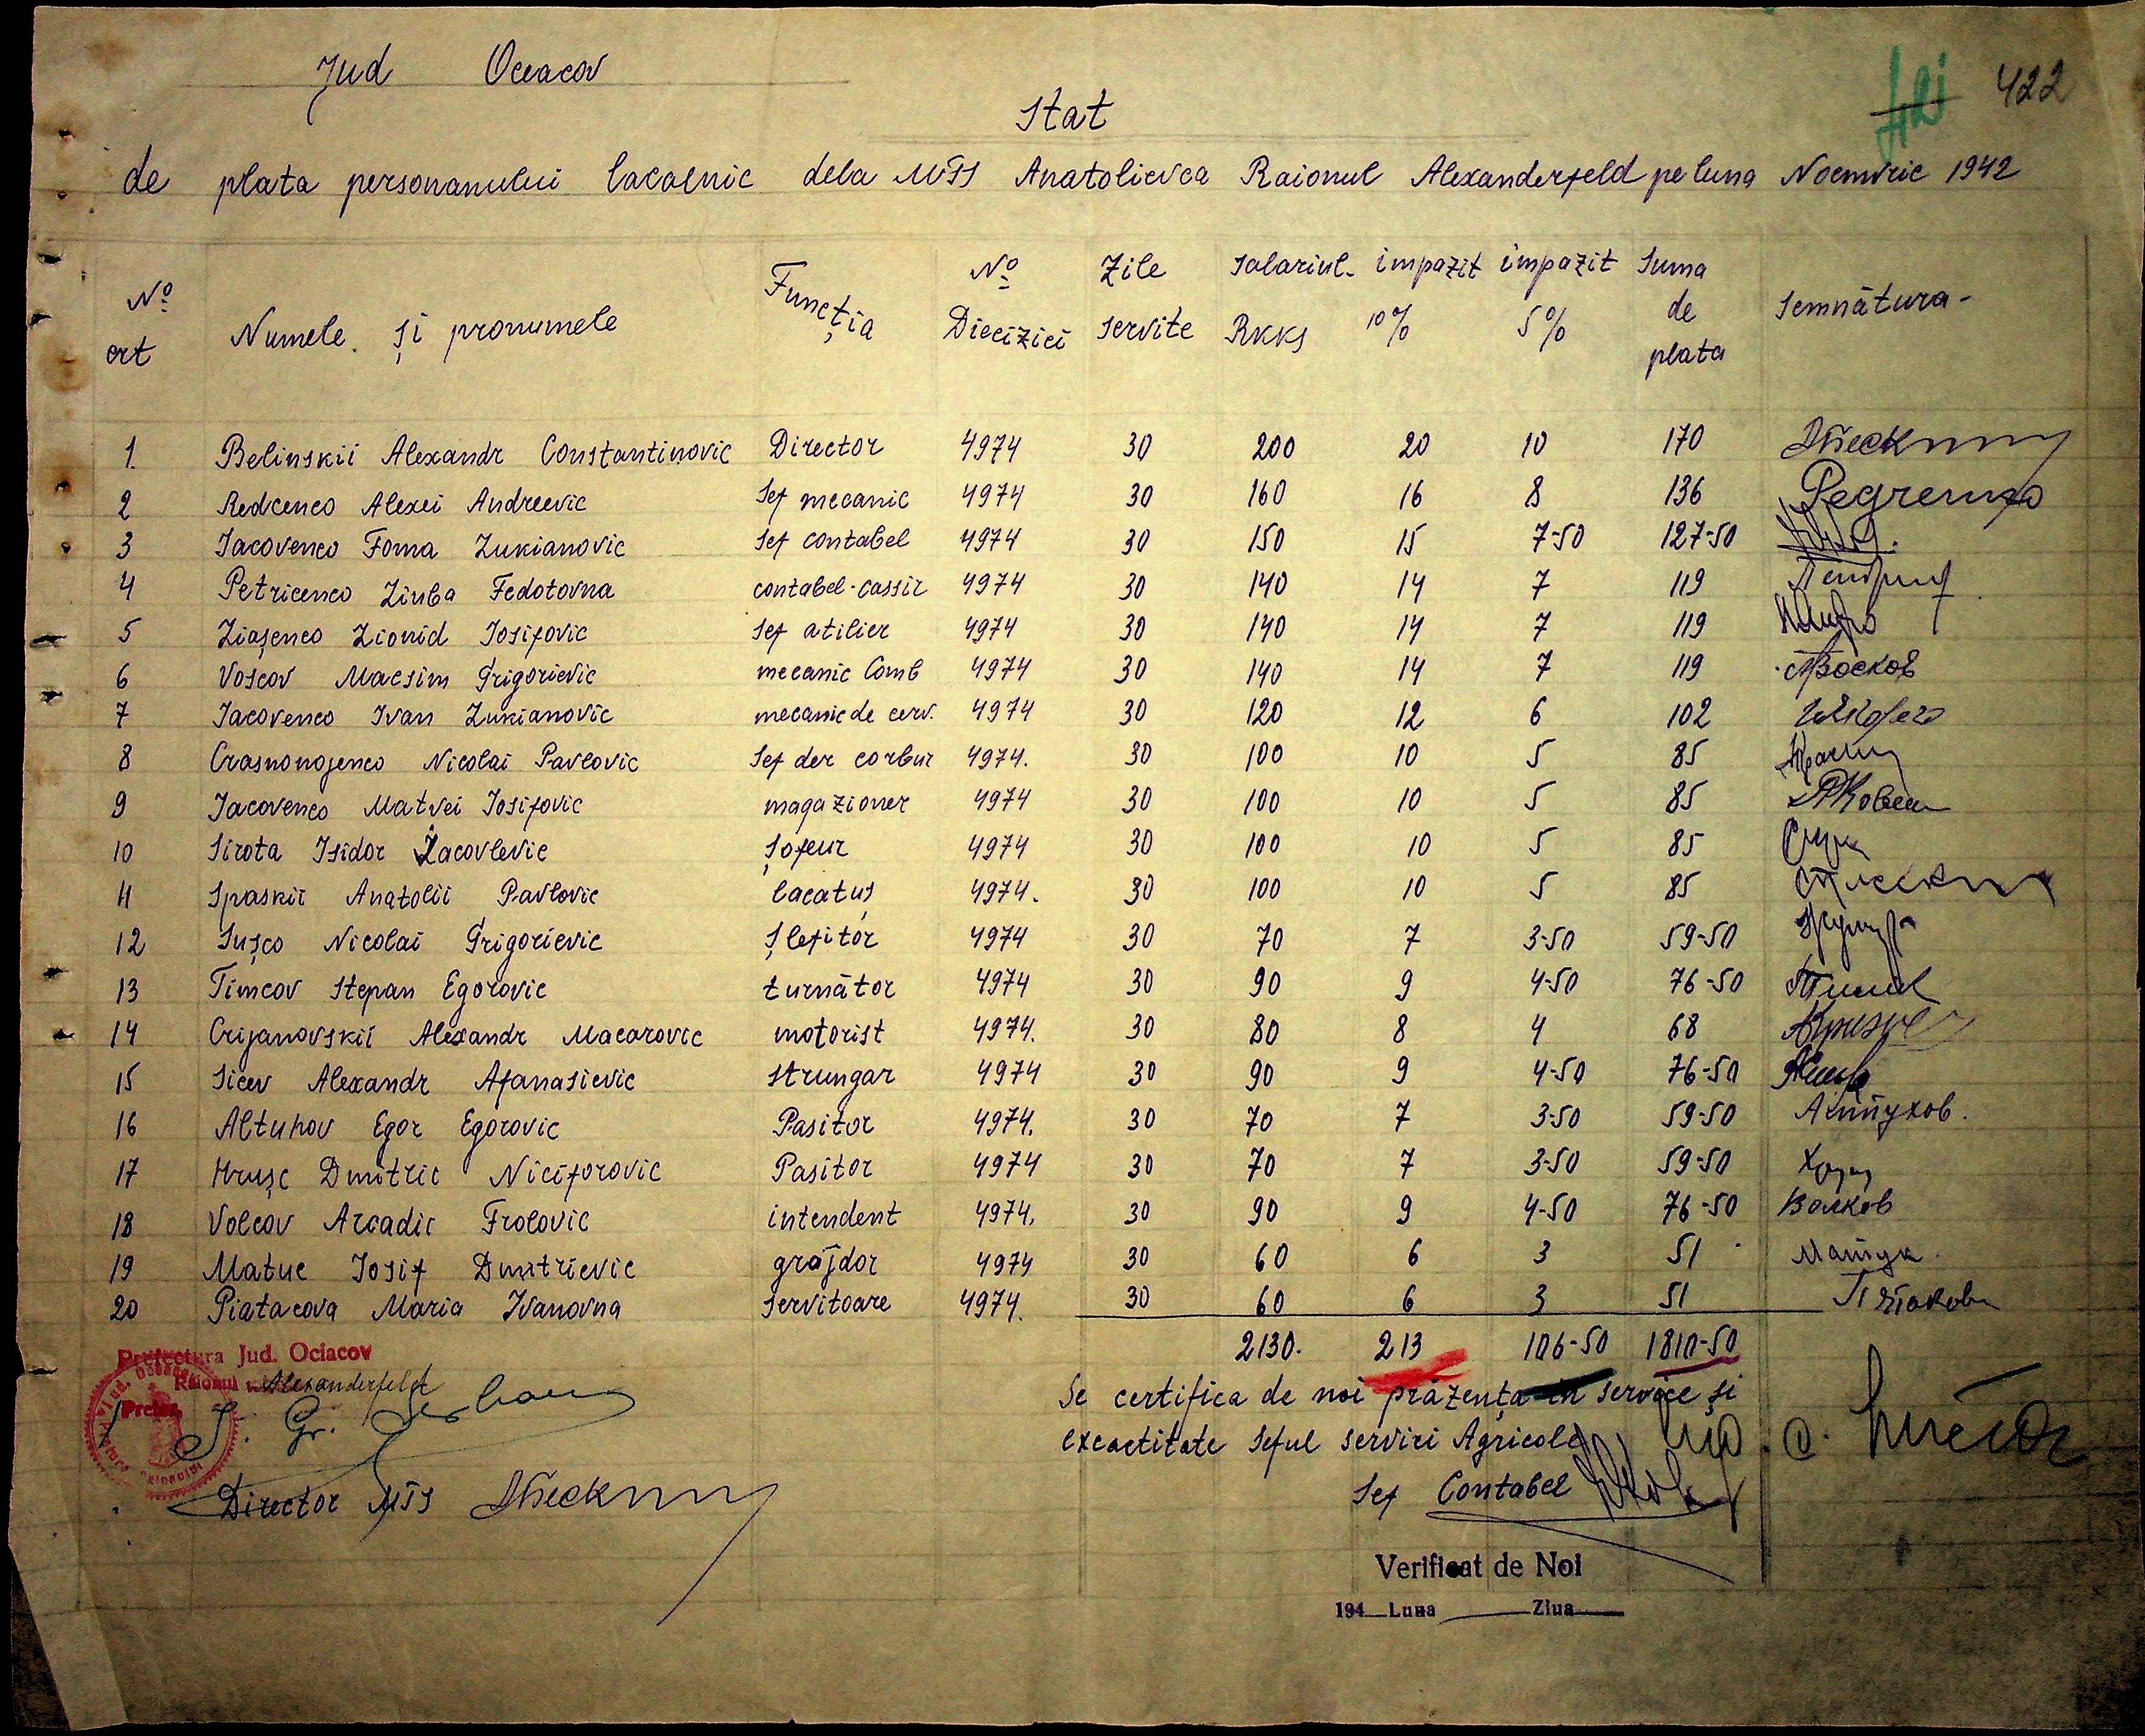 Jud Oceacov
422
Stat
de plata personanului lacalnic dela MTS Anatolievca Raionul Alexanderfeld pe luna Noemvrie 1942
No ort Numele și pronumele Funcția No Diecizici Zile servite Salariul RKKS impazit 10% impazit 5% Suma de plata Semnătura
1. Belinskii Alexandr Constantinovic Director 4974 30 200 20 10 170
2 Redcenco Alexei Andreevic Sef mecanic 4974 30 160 16 8 136
3 Iacovenco Foma Lukianovic Sef contabel 4974 30 150 15 7-50 127-50
4 Petricenco Liuba Fedotovna contabel-cassir 4974 30 140 14 7 119
5 Liașenco Lionid Iosifovic Sef atilier 4974 30 140 14 7 119
6 Voscov Macsim Grigorievic mecanic Comb 4974 30 140 14 7 119 Восков
7 Iacovenco Ivan Lukianovic mecanic de cerv. 4974 30 120 12 6 102
8 Crasnonojenco Nicolai Pavlovic Sef der corbur 4974. 30 100 10 5 85
9 Iacovenco Matvei Iosifovic magazioner 4974 30 100 10 5 85
10 Sirota Isidor Iacovlevic șofeur 4974 30 100 10 5 85
11 Spaskii Anatolii Pavlovic lacatuș 4974. 30 100 10 5 85
12 Sușco Nicolai Grigorievic șlefitor 4974 30 70 7 3-50 59-50
13 Timcov Stepan Egorovic turnător 4974 30 90 9 4-50 76-50
14 Crijanovskii Alexandr Macarovic motorist 4974. 30 80 8 4 68
15 Sicev Alexandr Afanasievic strungar 4974 30 90 9 4-50 76-50
16 Altuhov Egor Egorovic Pasitor 4974. 30 70 7 3-50 59-50 Алтухов.
17 Hrușc Dmitric Niciforovic Pasitor 4974 30 70 7 3-50 59-50
18 Volcov Arcadic Frolovic intendent 4974. 30 90 9 4-50 76-50 Волков
19 Matuc Iosif Dmitrievic grăjdor 4974 30 60 6 3 51 Матук
20 Piatacova Maria Ivanovna servitoare 4974. 30 60 6 3 51 Пятакова
2130. 213 106-50 1810-50
Prefectura Jud. Ociacov
Raionul Alexanderfeld
Pretor
Se certifica de noi prăzența in service și
excactitate Seful serviri Agricole
Director MTS
Sef Contabel
Verificat de Noi
194 Luna Ziua